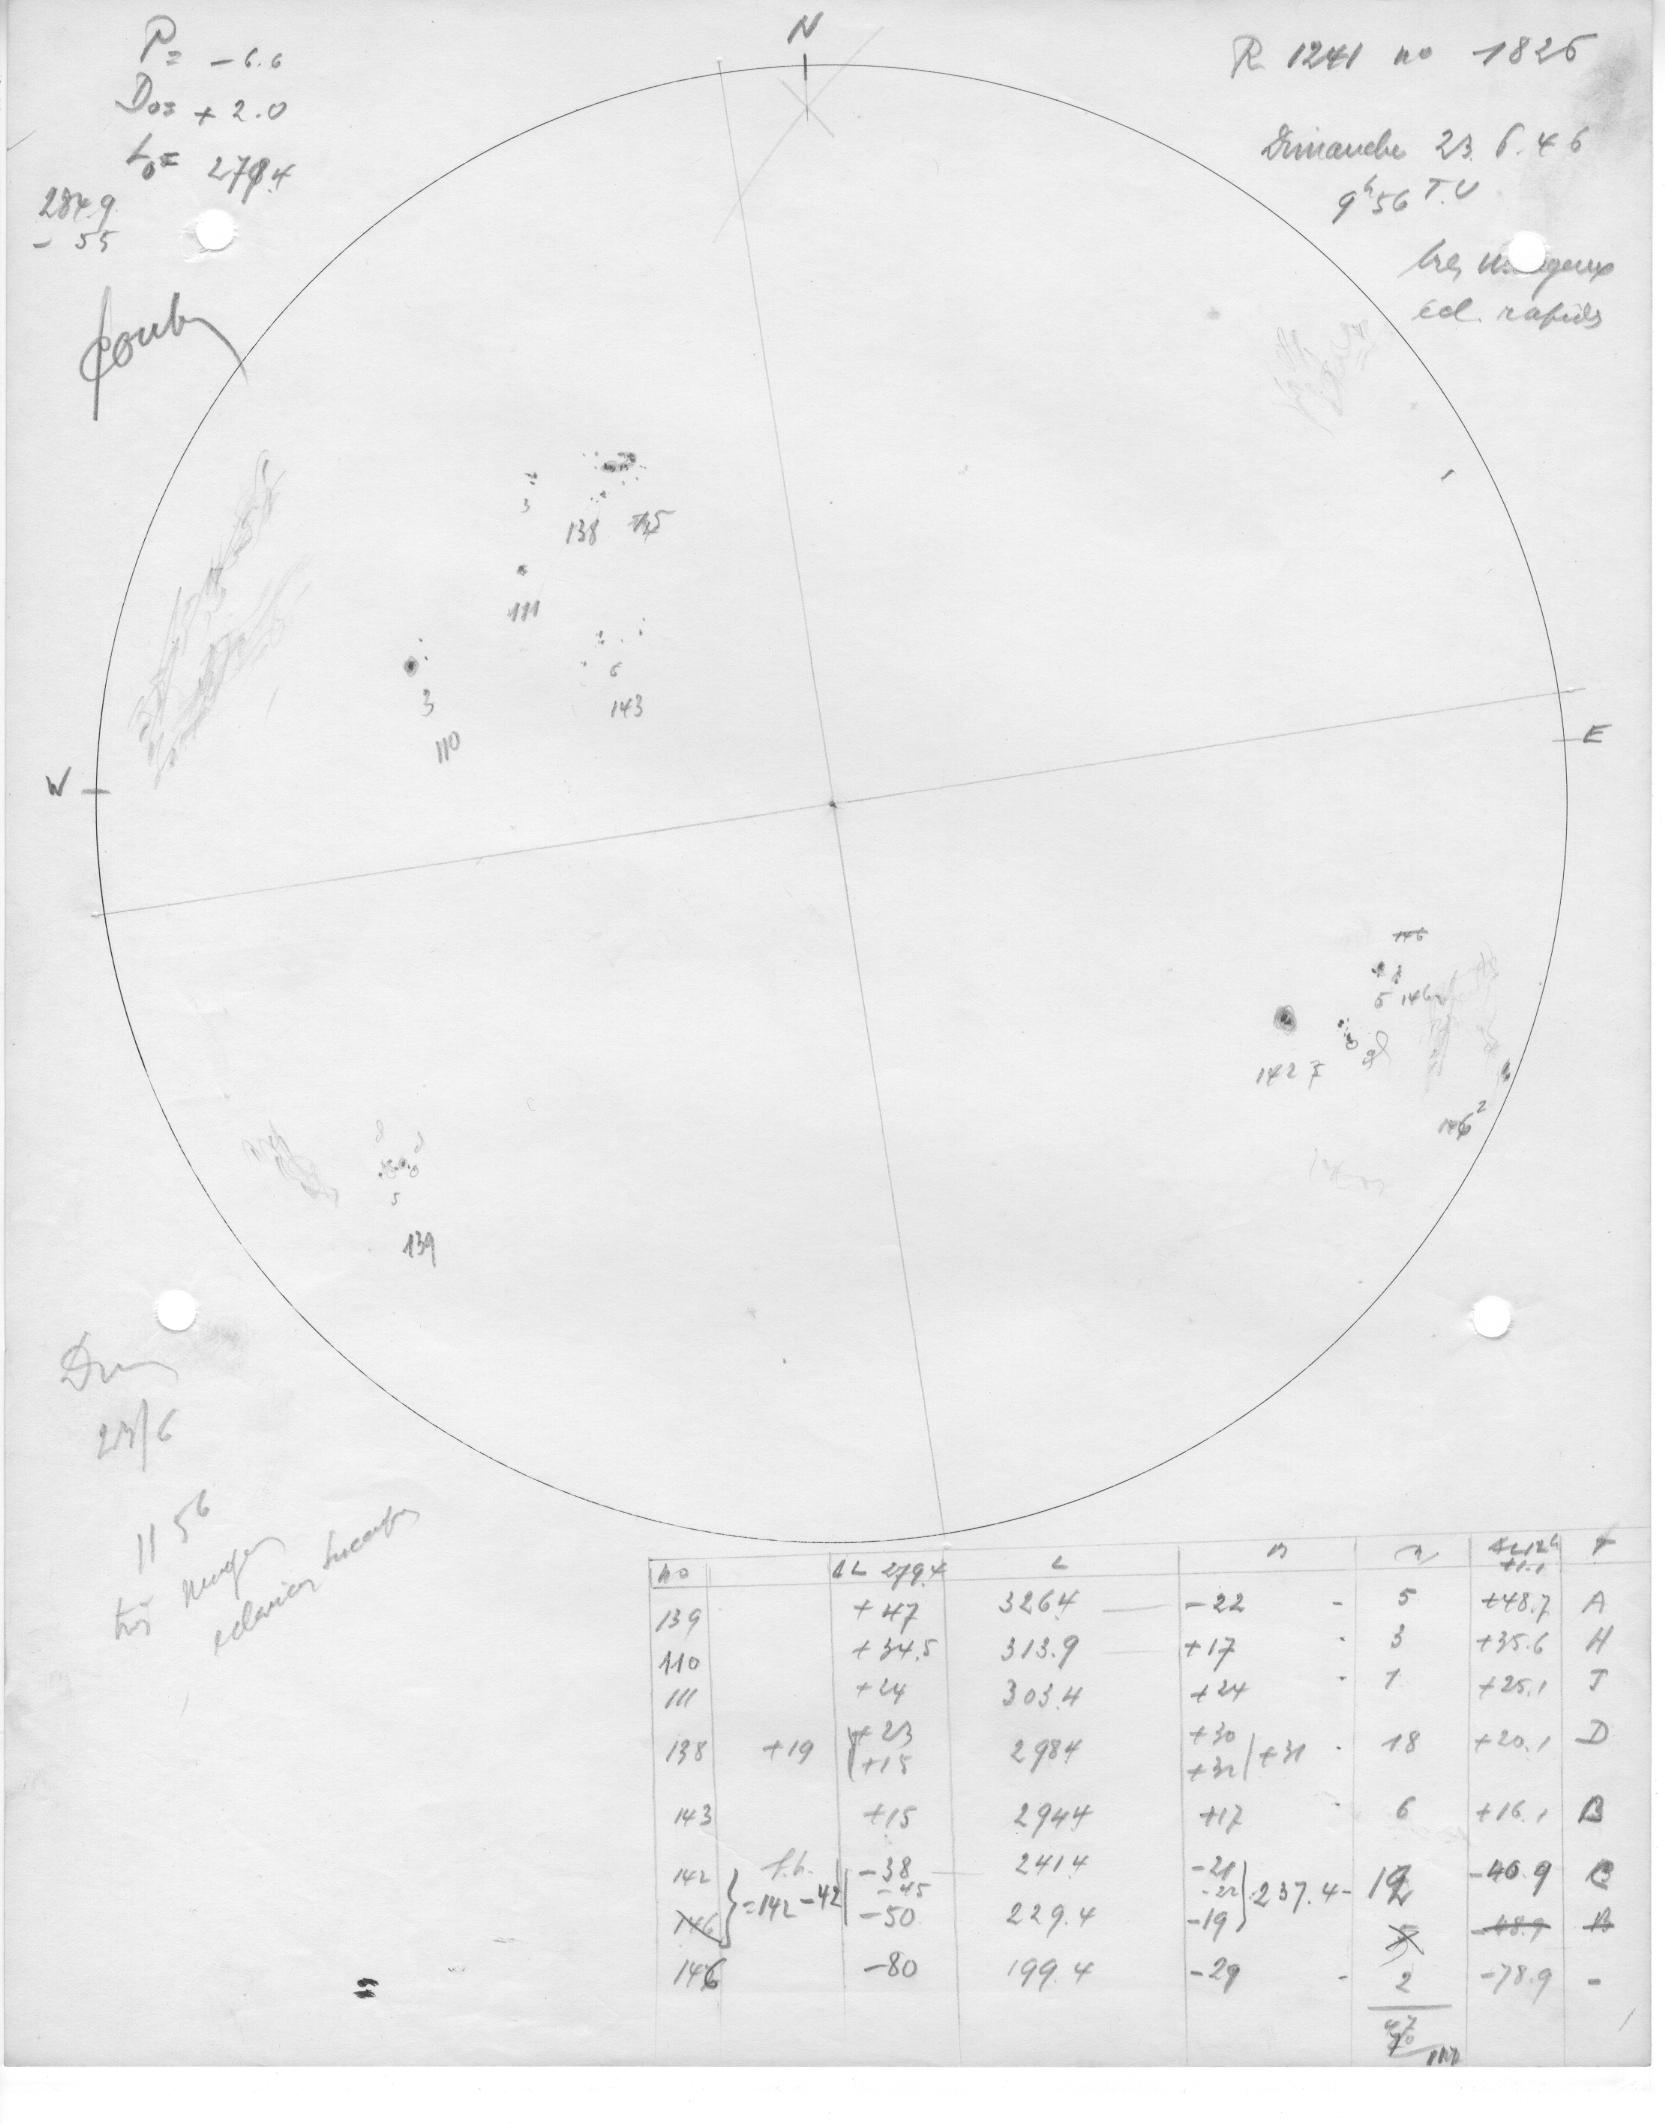 P= -6.6
Do= +2.0
Lo= 279.4
284.9
- 55
N
R 1241 no 1826
Dimanche 23.6.46
9h56 T.U
très nuageux
ecl. rapides
3
138
111
3
110
6
143
W
E
146
5 146
142 7
146 2
5
139
23/6
11 56
très nuageux
no ΔL 279.4 L B n
139 +47 326.4 -22 - 5 +48.7 A
110 +34.5 313.9 +17 - 3 +35.6 H
111 +24 303.4 +24 - 1 +25.1 J
138 +19 +23 298.4 +30 +31 - 18 +20.1 D
+15 +32
143 +15 294.4 +17 - 6 +16.1 B
142 -38 241.4 -21 237.4 - 12 -40.9 C
=142 -42 -45 -22
146 -50 229.4 -19 5 -48.9 B
146 -80 199.4 -29 - 2 -78.9 -
47